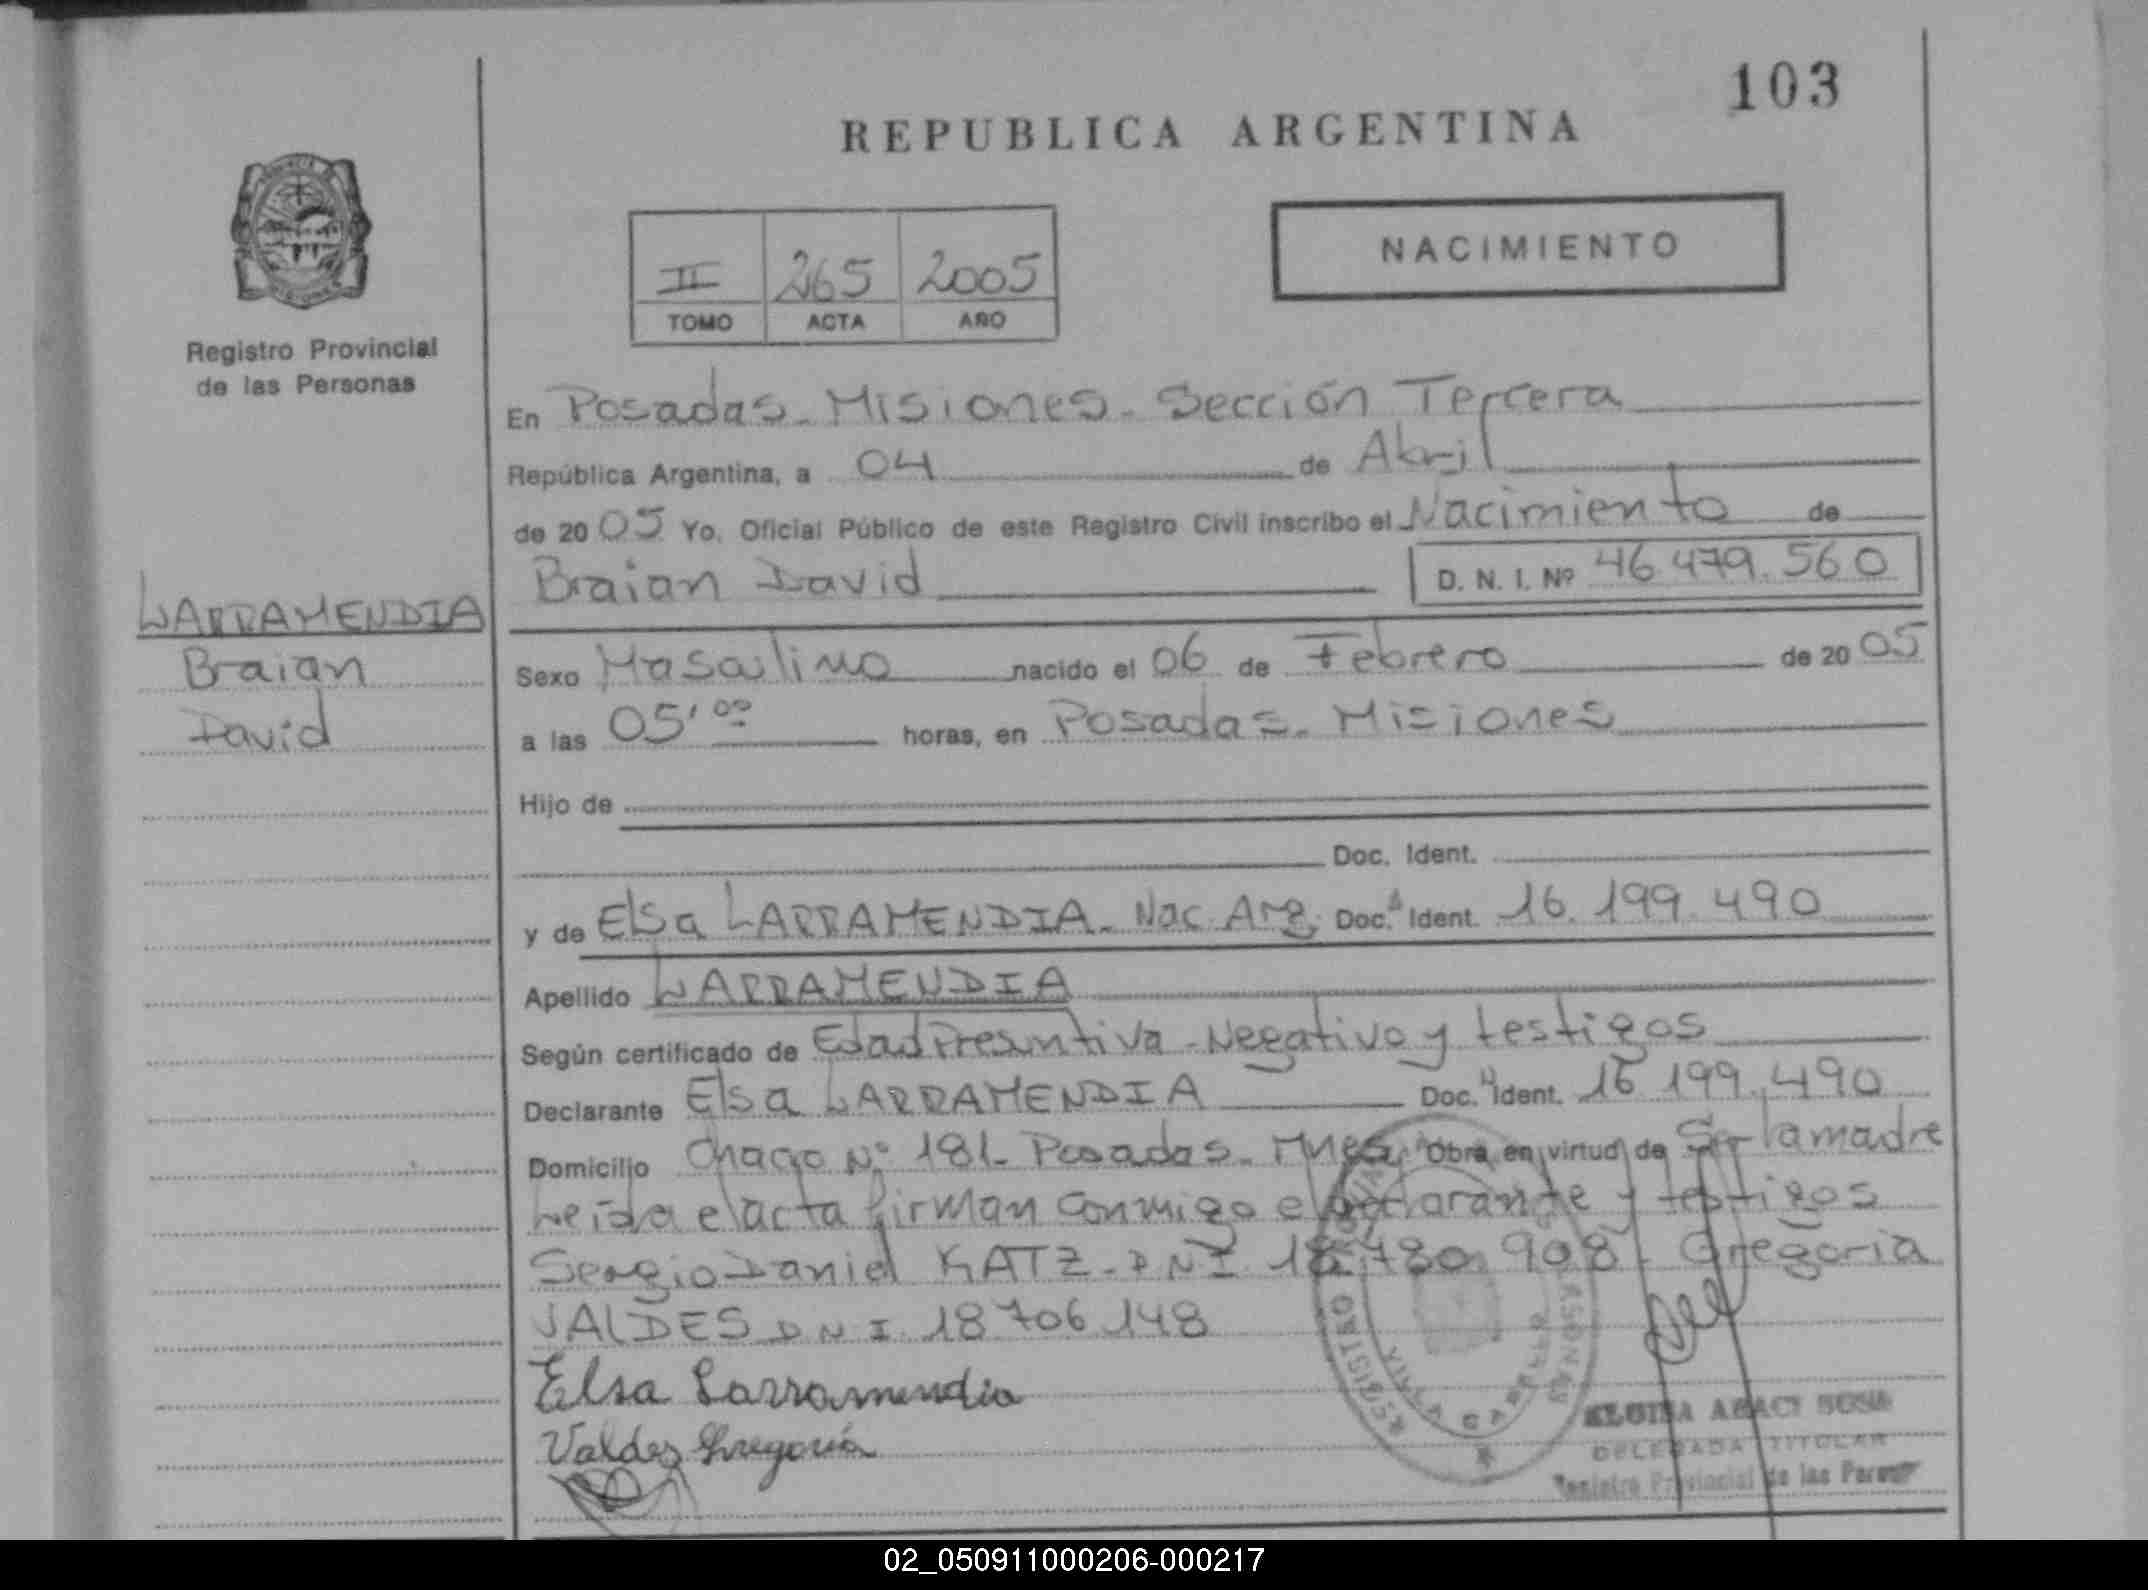 103
REPUBLICA ARGENTINA
NACIMIENTO
II 265 2005
TOMO ACTA AÑO
Registro Provincial
de las Personas
En Posadas - Misiones - Sección Tercera
República Argentina, a 04 de Abril
de 20 05 Yo. Oficial Público de este Registro Civil inscribo el Nacimiento de
Braian David D. N. I. Nº 46.479.560
LARRAMENDIA
Braian
David
Sexo Masculino nacido el 06 de Febrero de 20 05
a las 05'00 horas, en Posadas - Misiones
Hijo de
Doc. Ident.
y de Elsa LARRAMENDIA - Nac. Arg. Doc. Ident. 16.199.490
Apellido LARRAMENDIA
Según certificado de Edad Presuntiva - Negativo y testigos
Declarante Elsa LARRAMENDIA Doc. Ident. 16.199.490
Domicilio Chaco Nº 181 - Posadas - Mnes. Obra en virtud de Ser la madre
Leída el acta firman conmigo el declarante y testigos
Sergio Daniel KATZ - DNI 18.780.908 - Gregoria
VALDES DNI 18706148
Elsa Larramendia
Valdez Gregoria
REGISTRO
DELEGADA TITULAR
Registro Provincial de las Person
02_050911000206-000217